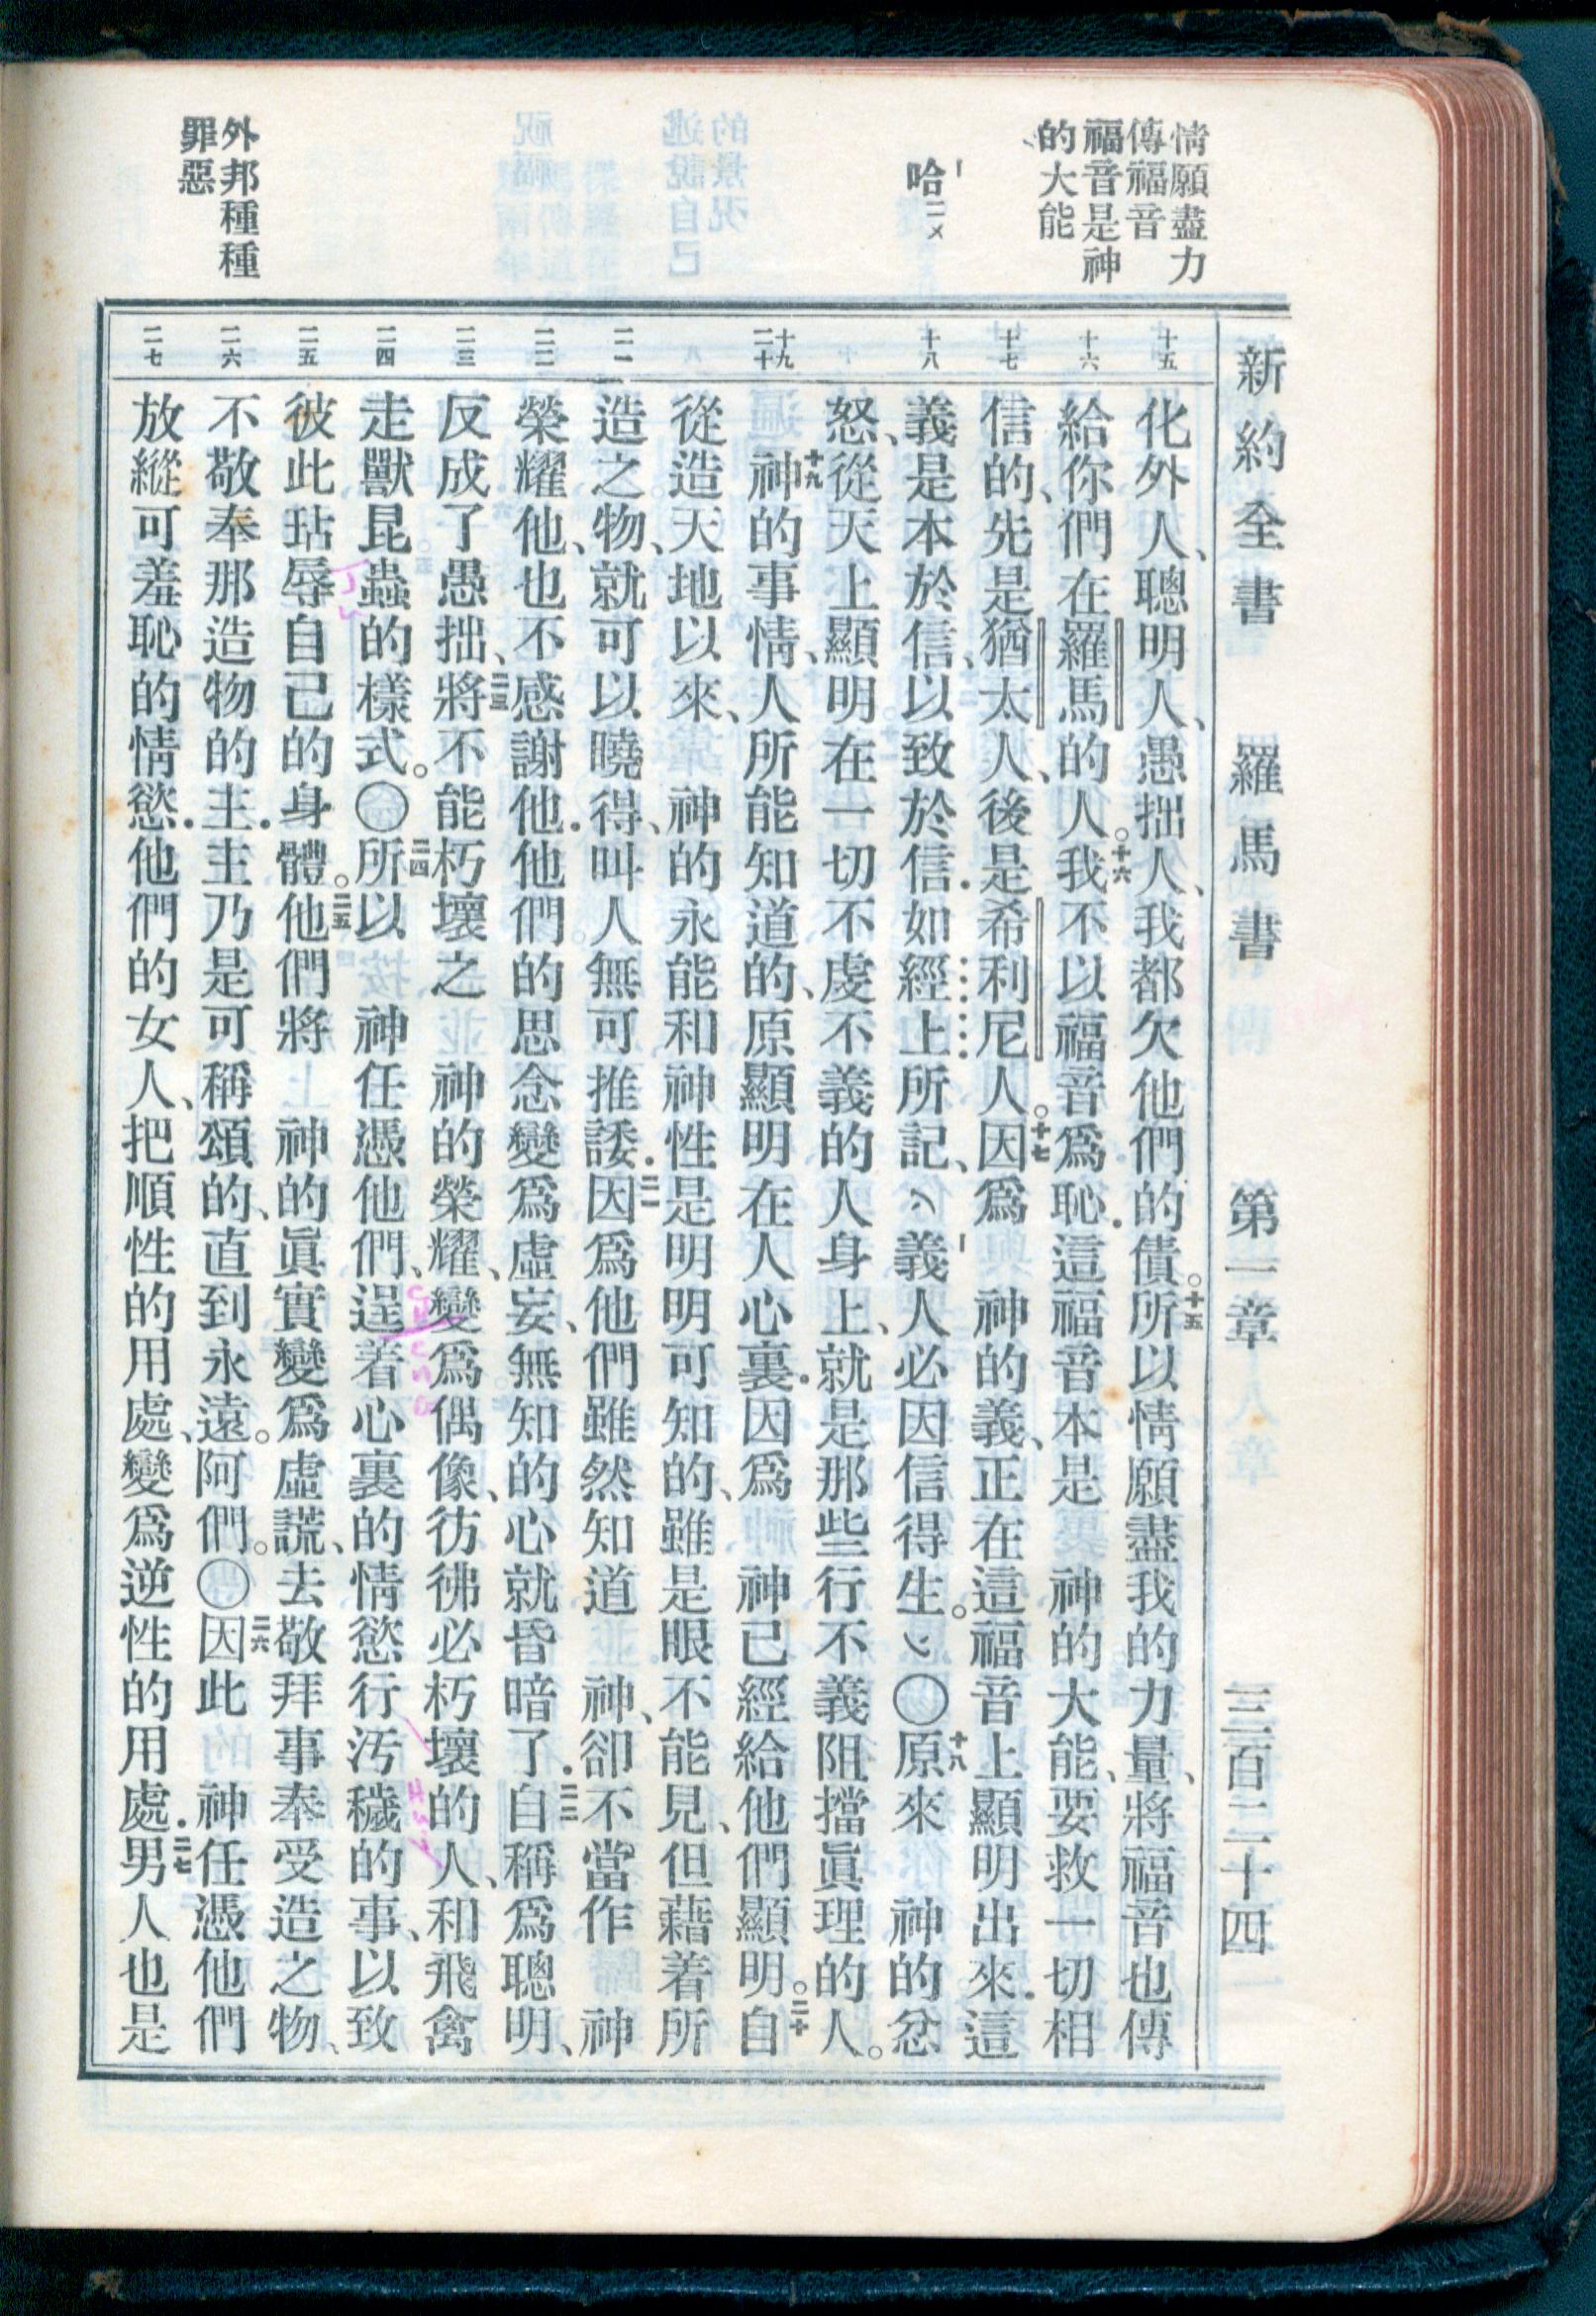 新約全書 羅馬書 第一章 三百二十四
情願盡力
傳福音
福音是神
的大能
哈二〤
外邦種種
罪惡
十五
十六
十七
十八
十九
二十
二一
二二
二三
二四
二五
二六
二七
化外人、聰明人、愚拙人、我都欠他們的債。十五所以情願盡我的力量、將福音也傳
給你們在羅馬的人。十六我不以福音爲恥．這福音本是 神的大能、要救一切相
信的、先是猶太人、後是希利尼人。十七因爲 神的義、正在這福音上顯明出來．這
義是本於信、以致於信．如經上所記、義人必因信得生。〇十八原來 神的忿
怒、從天上顯明在一切不虔不義的人身上、就是那些行不義阻擋眞理的人。
十九神的事情、人所能知道的、原顯明在人心裏．因爲 神已經給他們顯明。二十自
從造天地以來、 神的永能和神性是明明可知的、雖是眼不能見、但藉着所
造之物、就可以曉得、叫人無可推諉．二一因爲他們雖然知道 神、卻不當作 神
榮耀他、也不感謝他．他們的思念變爲虛妄、無知的心就昏暗了．二二自稱爲聰明、
反成了愚拙、二三將不能朽壞之 神的榮耀、變爲偶像、彷彿必朽壞的人、和飛禽
走獸昆蟲的樣式。〇二四所以 神任憑他們、逞着心裏的情慾行汚穢的事、以致
彼此玷辱自己的身體。二五他們將 神的眞實變爲虛謊、去敬拜事奉受造之物、
不敬奉那造物的主．主乃是可稱頌的、直到永遠。阿們。〇二六因此 神任憑他們
放縱可羞恥的情慾．他們的女人、把順性的用處、變爲逆性的用處．二七男人也是